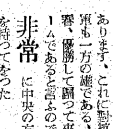 あります、これに對
軍も一方の雄である、
響、優勝して歸つて來
ームであると言ふので
非常
に中央の方
を持つてをつた